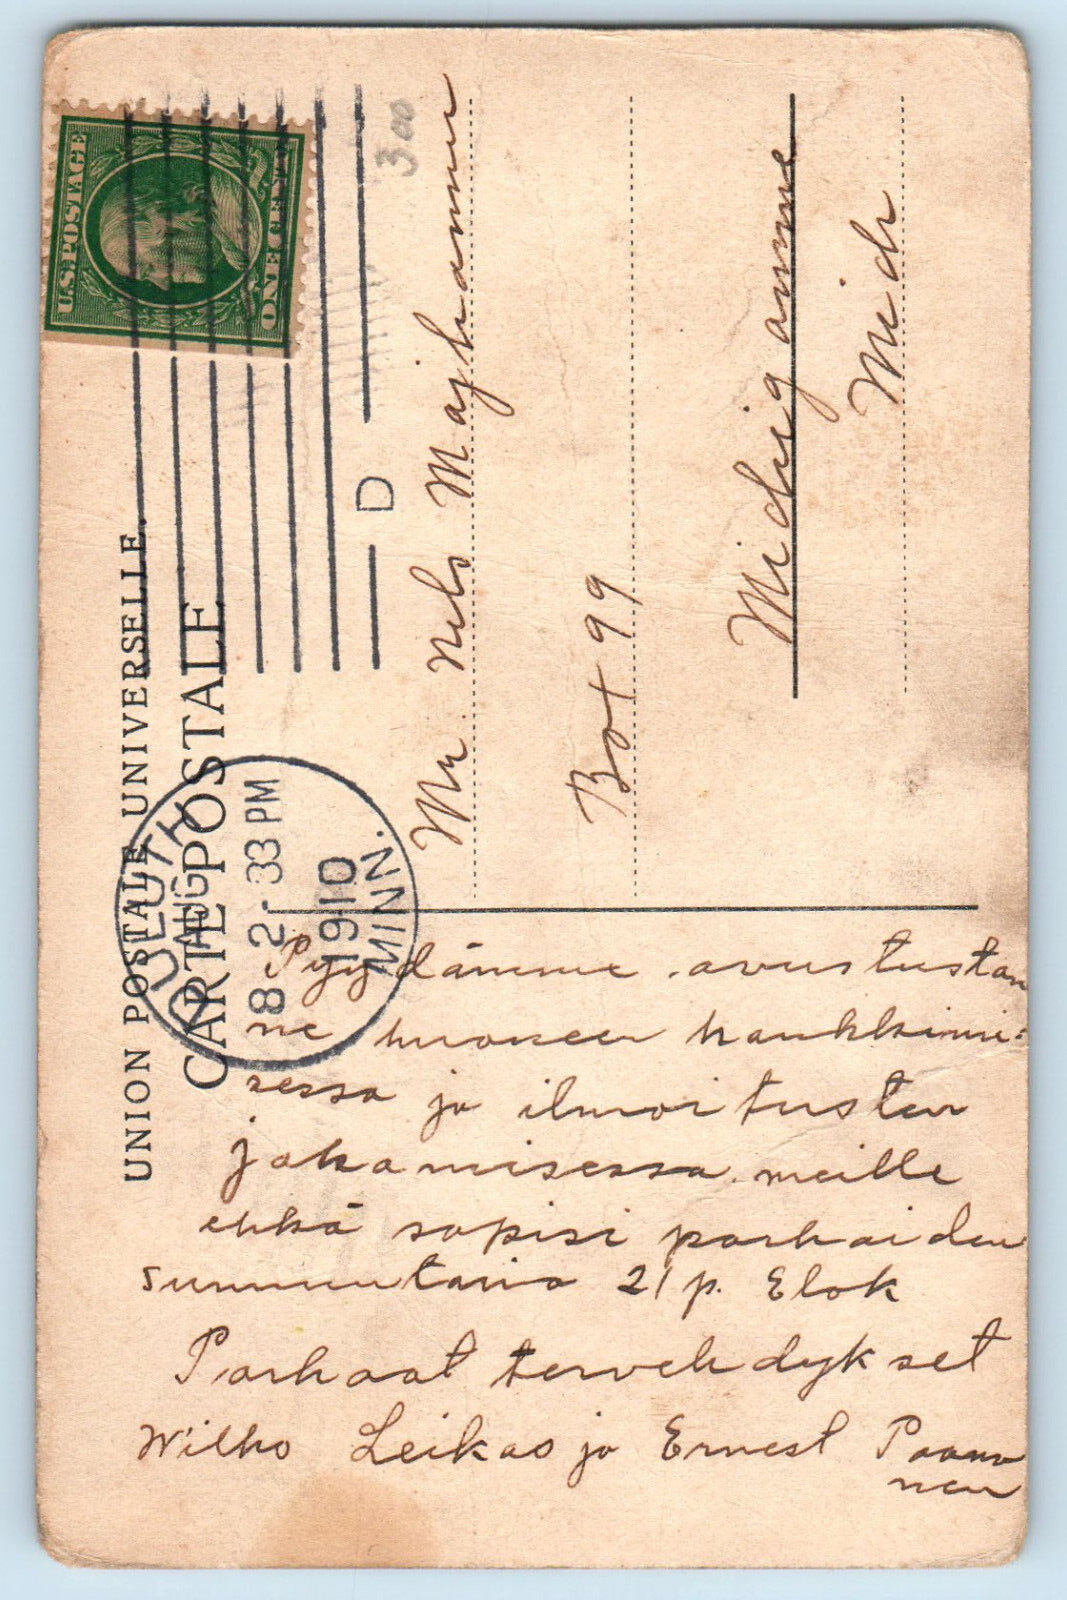 UNION POSTALE UNIVERSELLE.
CARTE POSTALE
U.S. POSTAGE
ONE CENT
DULUTH
AUG
8 2-33 PM
1910
MINN.
D
300
Mr. Nels Majhannu
Box 99
Michigamme
Mich
Pyydämme avustustan
ne huoneen hankkimi-
sessa ja ilmoitusten
jakamisessa. meille
ehkä sopisi parhaiden
sunnuntaina 21 p. Elok
Parhaat tervehdykset
Wilho Leikas ja Ernest Paana
nen